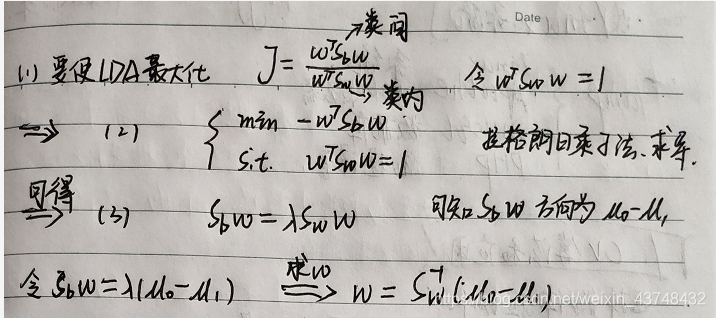 Date
→类间
(1) 要使LDA最大化 J = wᵀS_b w / wᵀS_w w 令 wᵀS_w w = 1
→类内
⇒ (2) { min -wᵀS_b w
s.t. wᵀS_w w = 1 拉格朗日乘子法、求导.
可得
⇒ (3) S_b w = λS_w w 可知 S_b w 方向为 μ₀-μ₁
令 S_b w = λ(μ₀-μ₁) 求w ⇒ w = S_w⁻¹(μ₀-μ₁)
https://blog.csdn.net/weixin_43748432